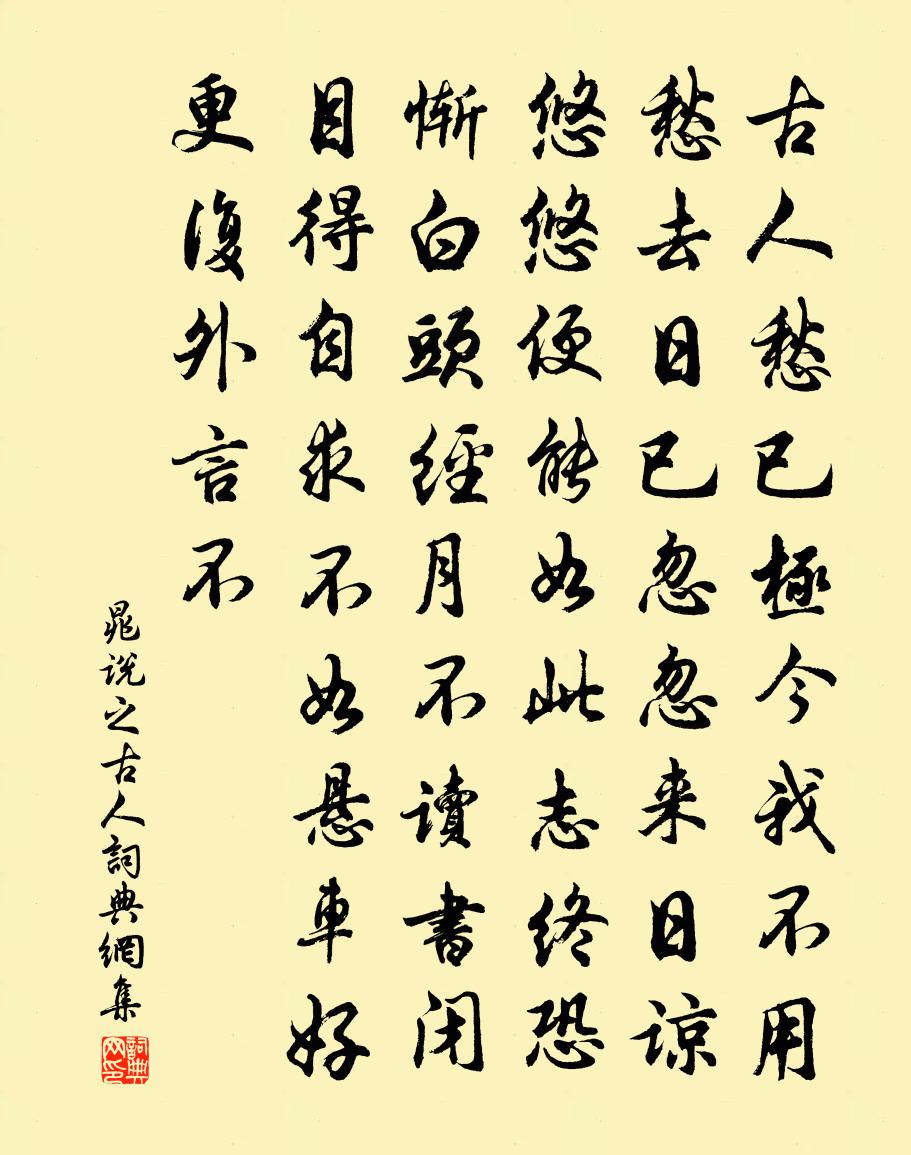 古人愁已極今我不用
愁去日已忽忽来日諒
悠悠便能如此志终恐
慚白頭經月不讀書闭
目得自求不如悬車好
更復外言不
晁说之古人詞典網集
詞典网印